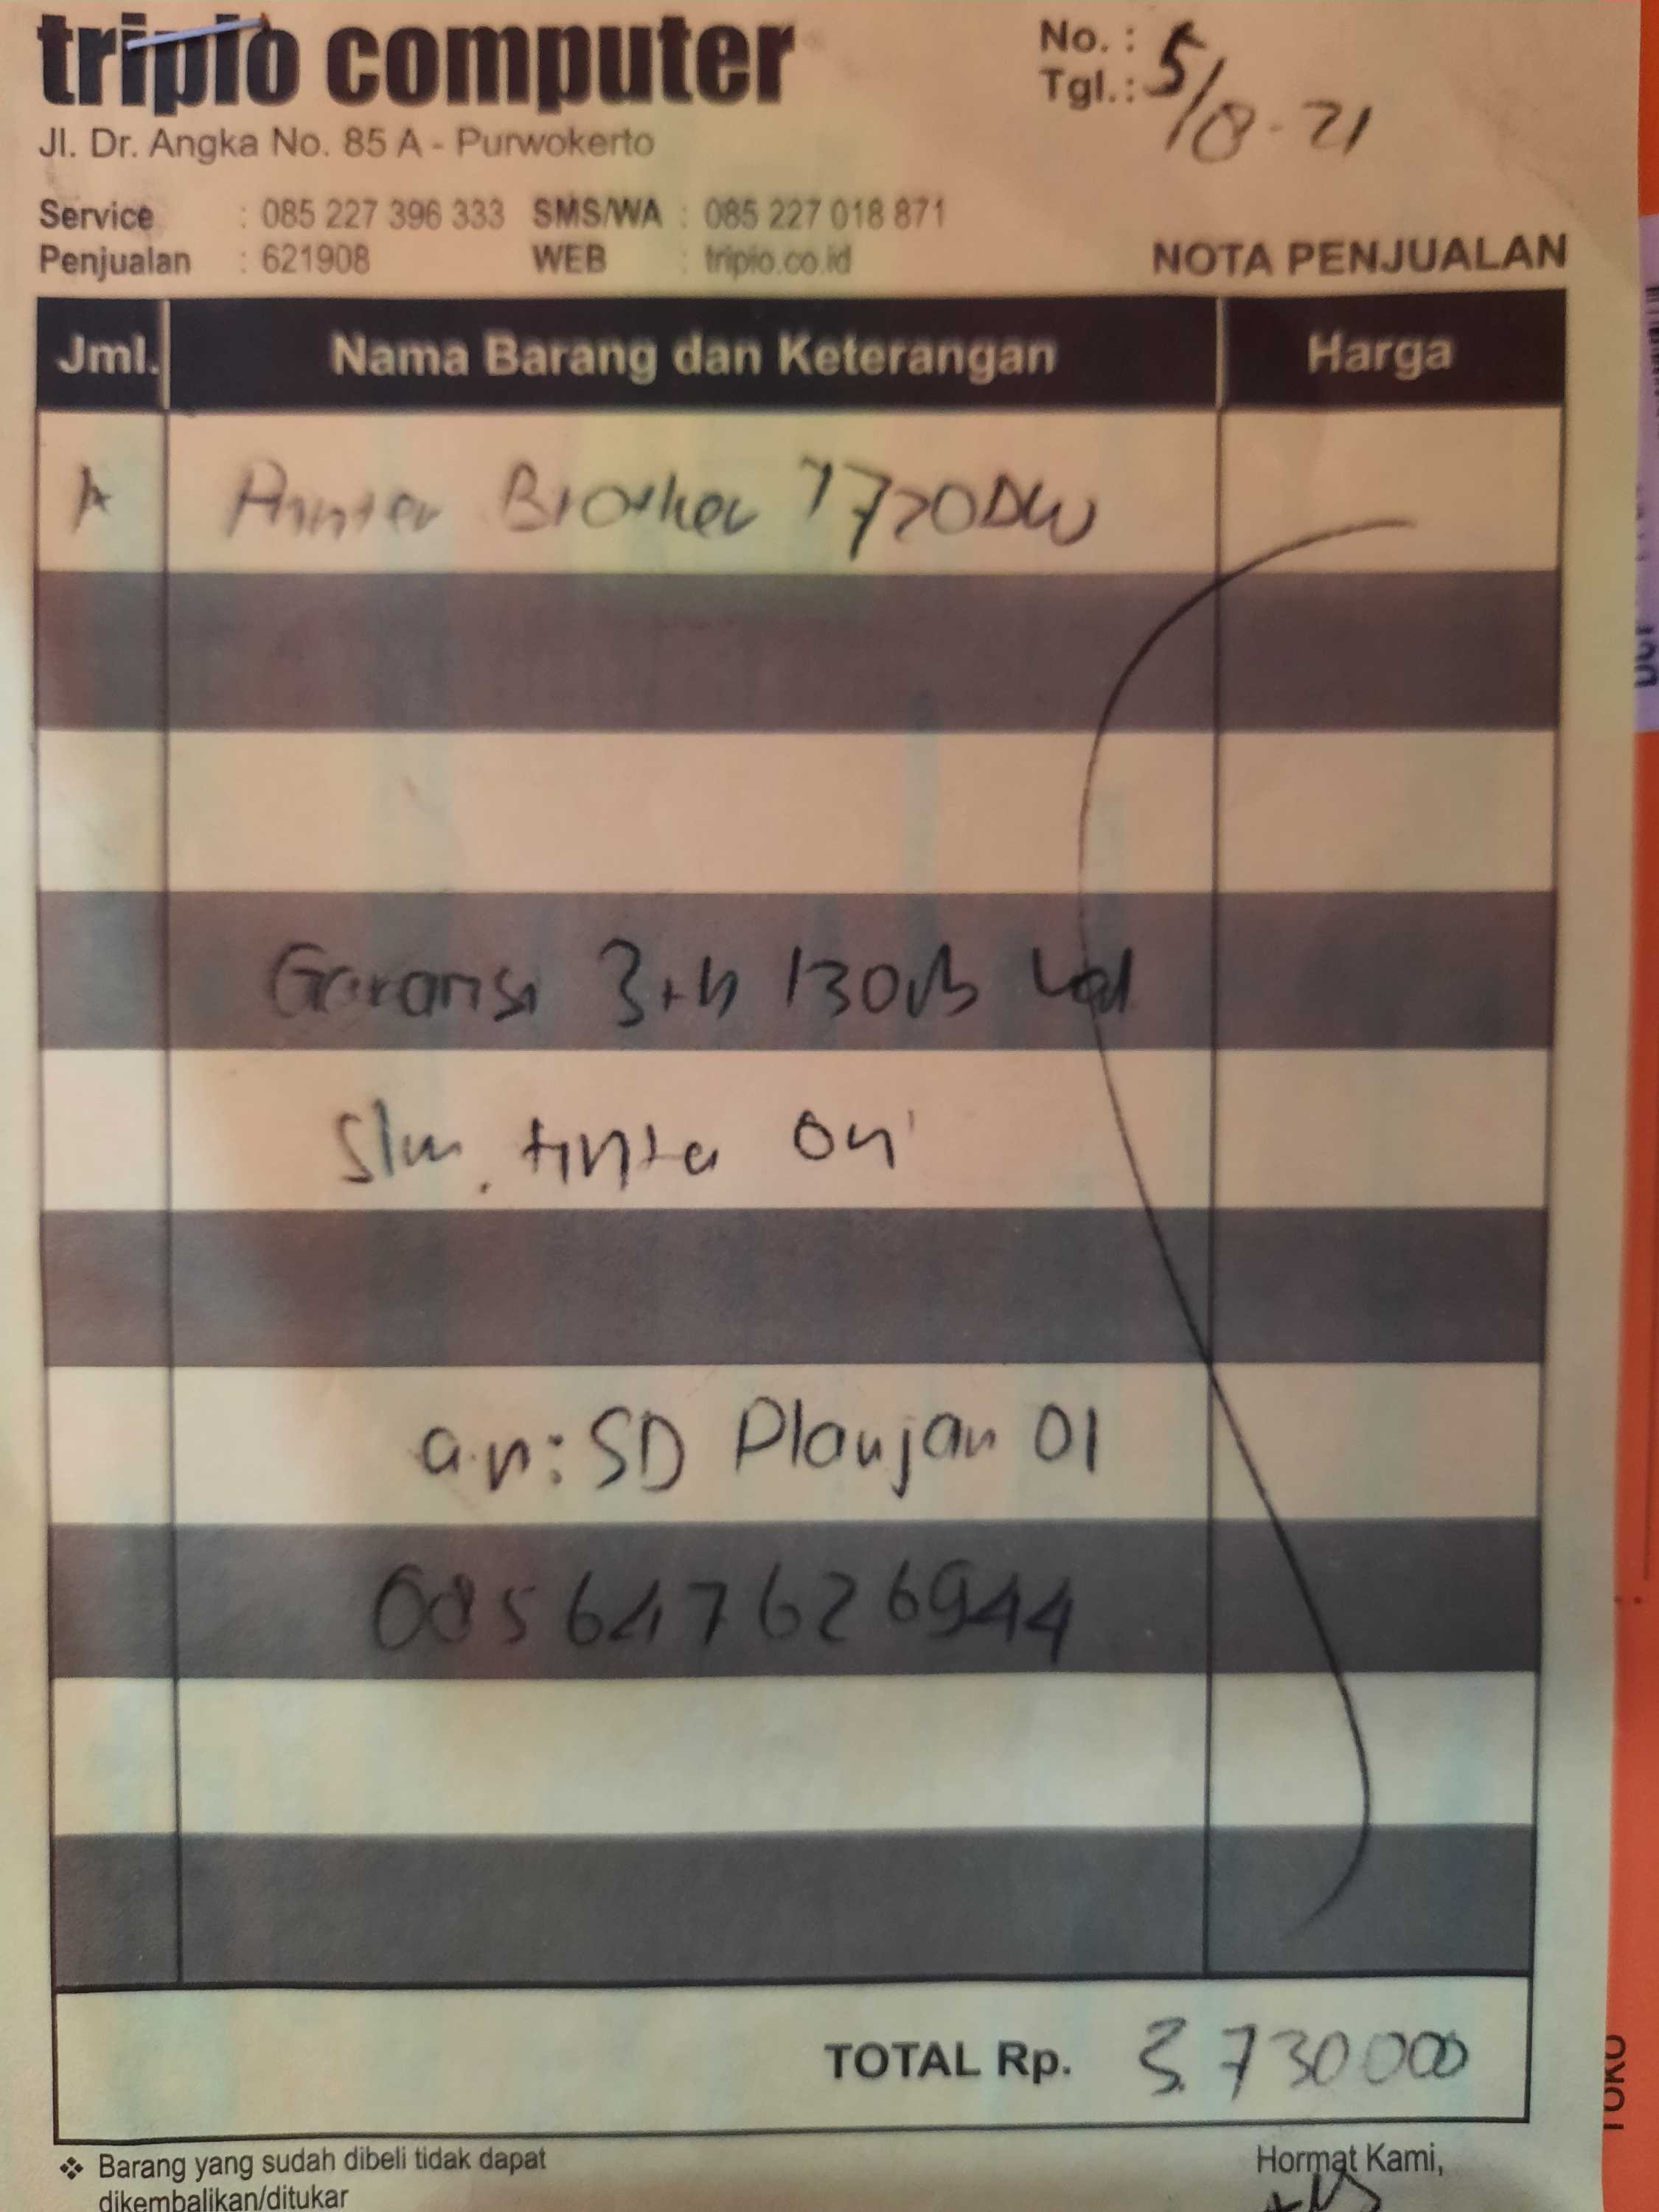 tripio computer
Jl. Dr. Angka No. 85 A - Purwokerto
No. :
Tgl.: 5/8-21
Service : 085 227 396 333 SMS/WA : 085 227 018 871
Penjualan : 621908 WEB : tripio.co.id
NOTA PENJUALAN
Jml. Nama Barang dan Keterangan Harga
Printer Brother T720DW
Garansi 3th
tinta ori
a.n: SD Planjan 01
085647626944
TOTAL Rp. 3.730000
❖ Barang yang sudah dibeli tidak dapat
dikembalikan/ditukar
Hormat Kami,
TOKO